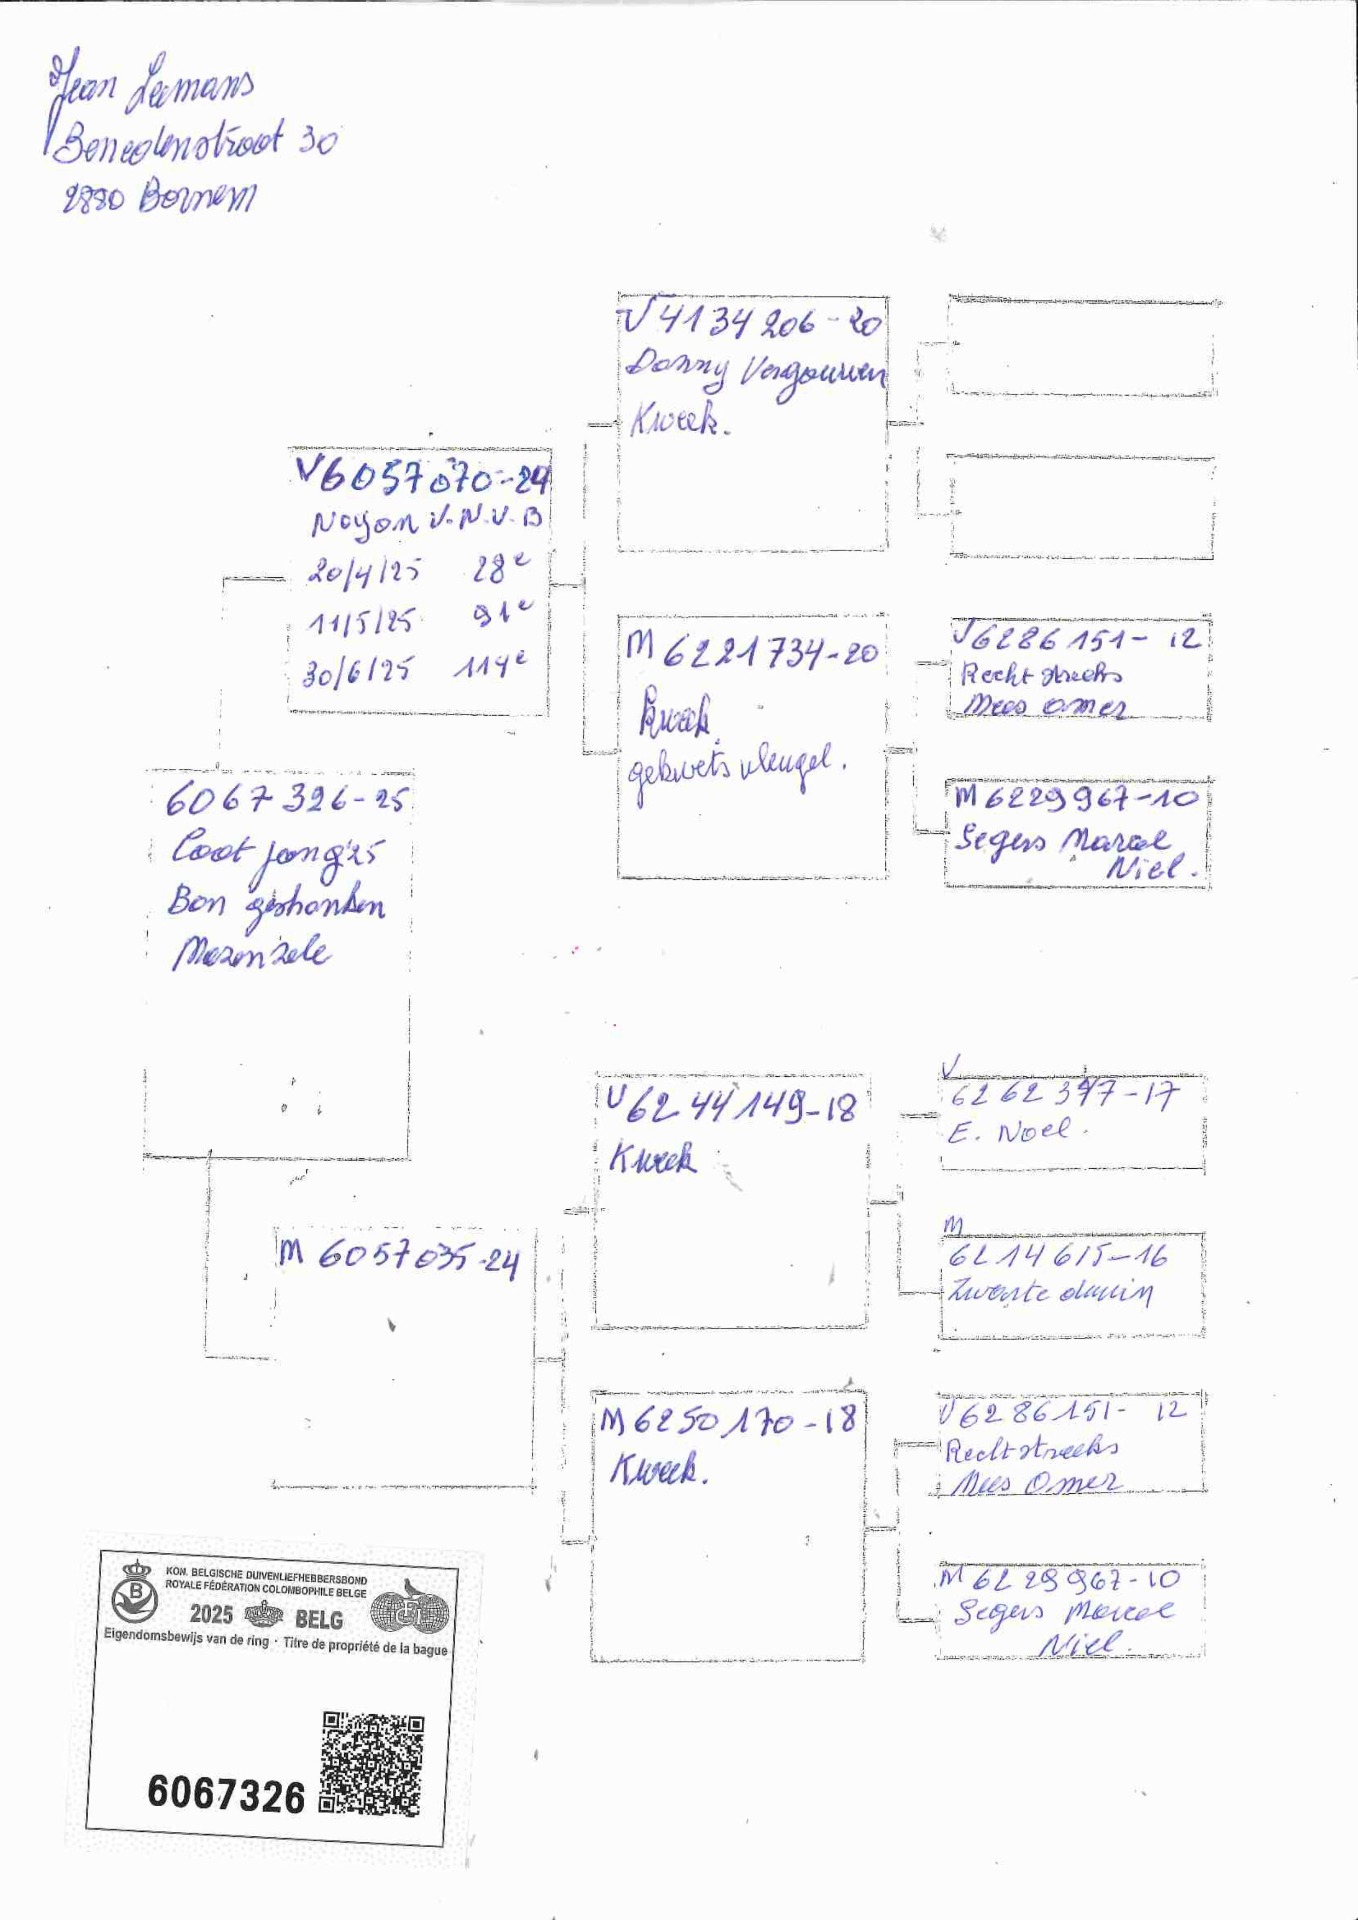 Jean Leemans
Benedenstraat 30
2880 Bornem
V 4134206-20
Danny Vergouwen
Kweek.
V6057070-24
Noyon V.N.V.B
20/4/25 28e
11/5/25 91e
30/6/25 114e
M 6221734-20
Kweek
gekwets vleugel.
V6286151-12
Rechtstreeks
Mees Omer
M6229967-10
Segers Marcel
Niel.
6067326-25
Laat jong '25
Bon geschonken
Mazenzele
V 6244149-18
Kweek
V
6262377-17
E. Noel.
M
6214615-16
Zwarte duivin
M 6057035-24
M6250170-18
Kweek.
V6286151-12
Rechtstreeks
Mees Omer
M 6229967-10
Segers Marcel
Niel.
KON. BELGISCHE DUIVENLIEFHEBBERSBOND
ROYALE FÉDÉRATION COLOMBOPHILE BELGE
B
2025 BELG
Eigendomsbewijs van de ring · Titre de propriété de la bague
6067326